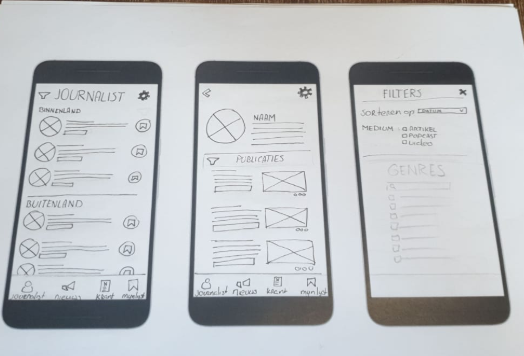 JOURNALIST
BINNENLAND
BUITENLAND
Journalist nieuws krant mijnlijst
NAAM
PUBLICATIES
Journalist nieuws krant mijnlijst
FILTERS
Sorteren op
MEDIUM: ARTIKEL
PODCAST
Video's
GENRES